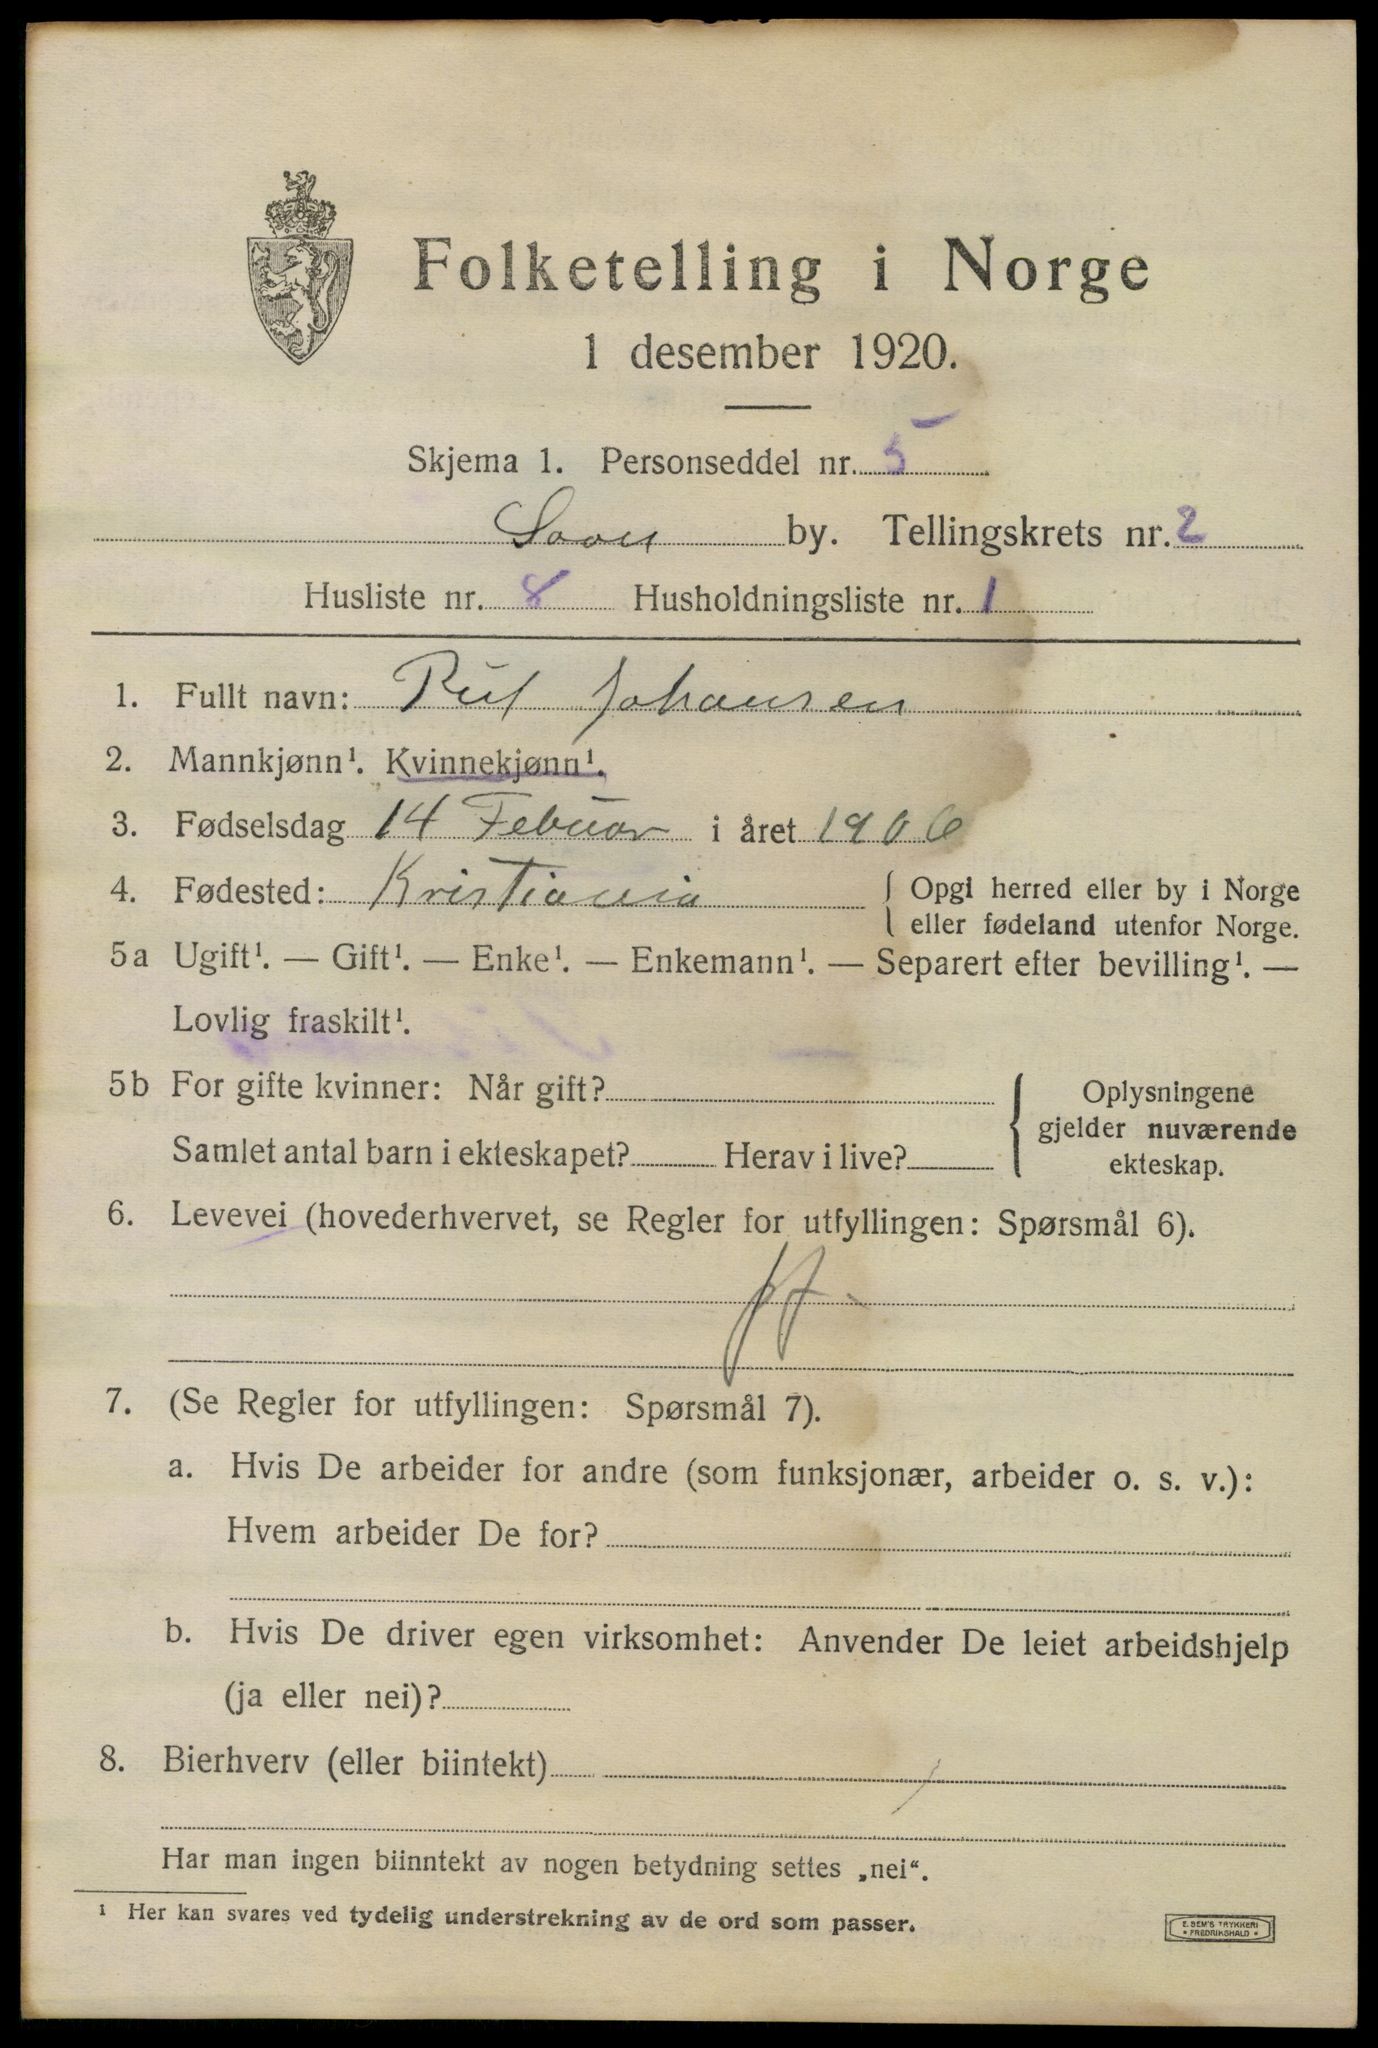 Folketelling i Norge
1 desember 1920.
Skjema 1. Personseddel nr. 5
Soon by. Tellingskrets nr. 2
Husliste nr. 8 Husholdningsliste nr. 1
1. Fullt navn: Rut Johansen
2. Mannkjønn¹. Kvinnekjønn¹.
3. Fødselsdag 14 Febuar i året 1906
4. Fødested: Kristiania { Opgi herred eller by i Norge
eller fødeland utenfor Norge.
5a Ugift¹. — Gift¹. — Enke¹. — Enkemann¹. — Separert efter bevilling¹. —
Lovlig fraskilt¹.
5b For gifte kvinner: Når gift? { Oplysningene
gjelder nuværende
Samlet antal barn i ekteskapet? Herav i live? ekteskap.
6. Levevei (hovederhvervet, se Regler for utfyllingen: Spørsmål 6).
7. (Se Regler for utfyllingen: Spørsmål 7).
a. Hvis De arbeider for andre (som funksjonær, arbeider o. s. v.):
Hvem arbeider De for?
b. Hvis De driver egen virksomhet: Anvender De leiet arbeidshjelp
(ja eller nei)?
8. Bierhverv (eller biintekt)
Har man ingen biinntekt av nogen betydning settes „nei“.
¹ Her kan svares ved tydelig understrekning av de ord som passer.
E. SEM'S TRYKKERI
* FREDRIKSHALD *